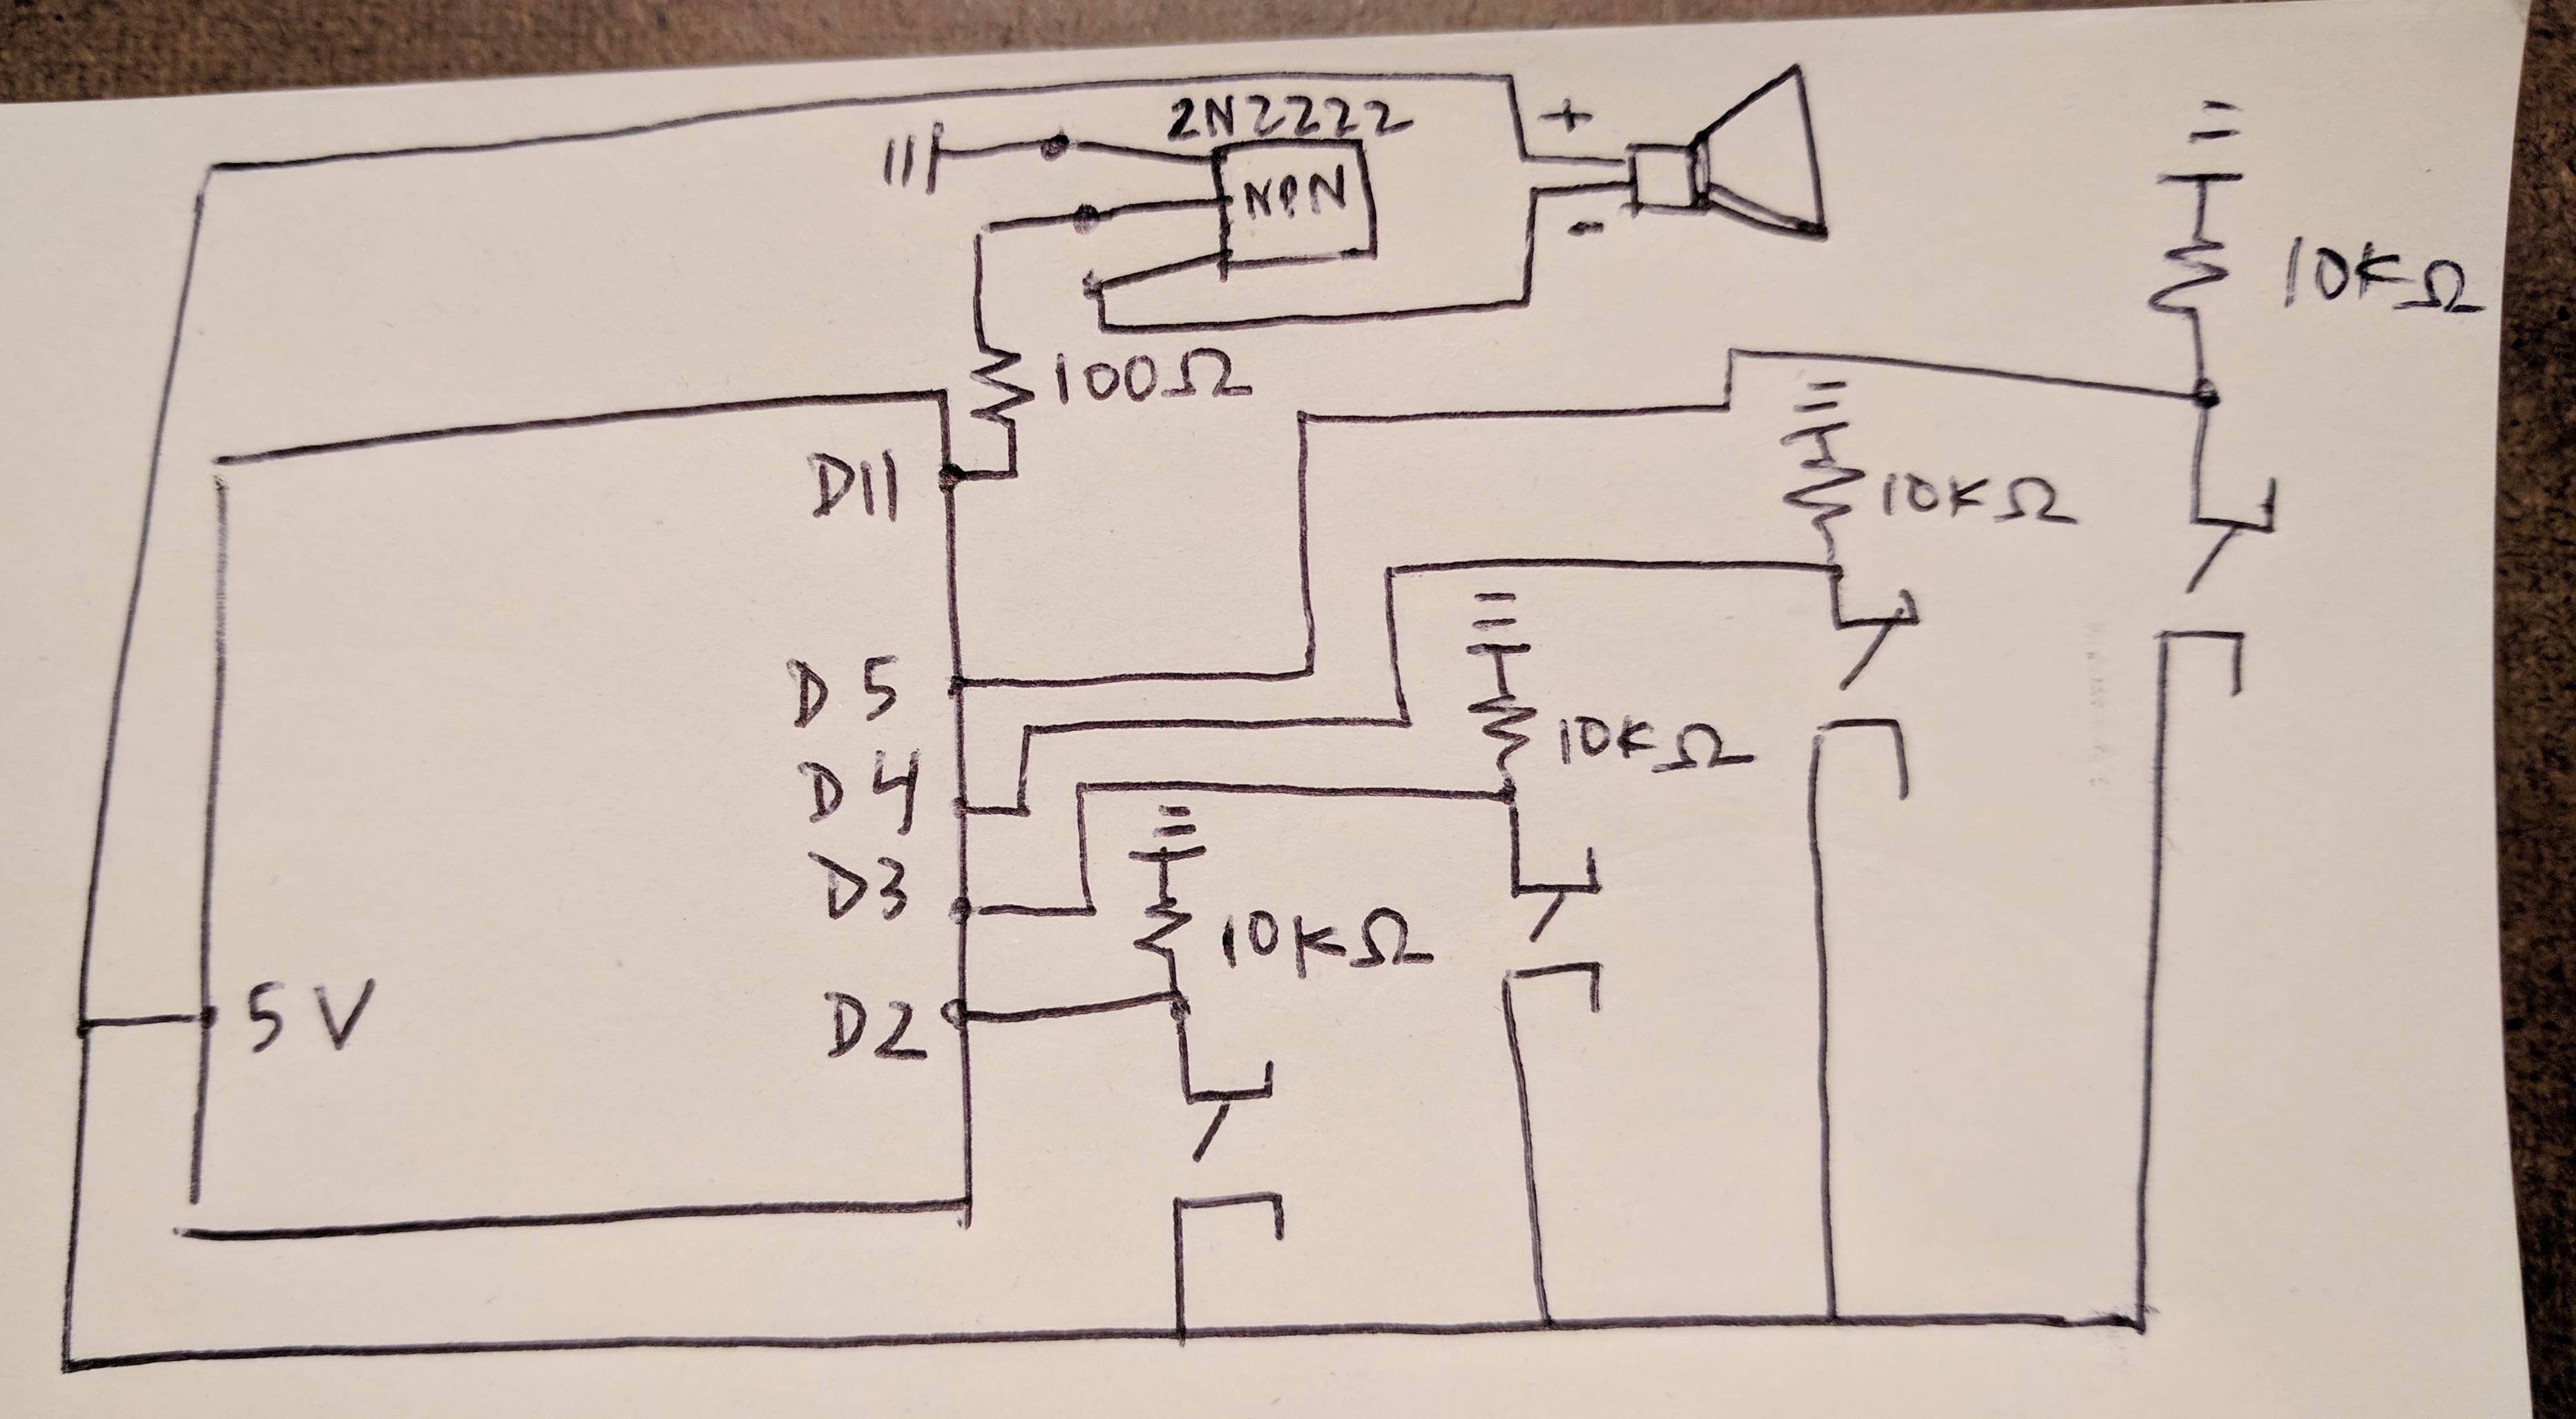 2N2222
+
NPN
-
10KΩ
100Ω
D11
10KΩ
D5
10KΩ
D4
D3
10KΩ
5V
D2